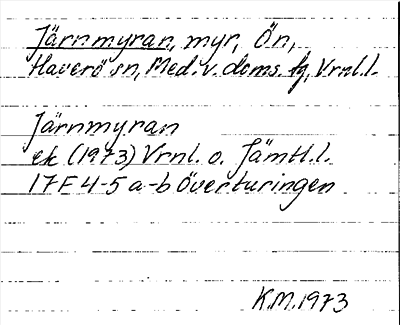 Järnmyran, myr, Ön,
Haverö sn, Med. v. doms. tg, Vrnl. l.
Järnmyran
ek (1973) Vrnl. o. Jämtl. l.
17F 4-5 a-b Överturingen
K.M. 1973